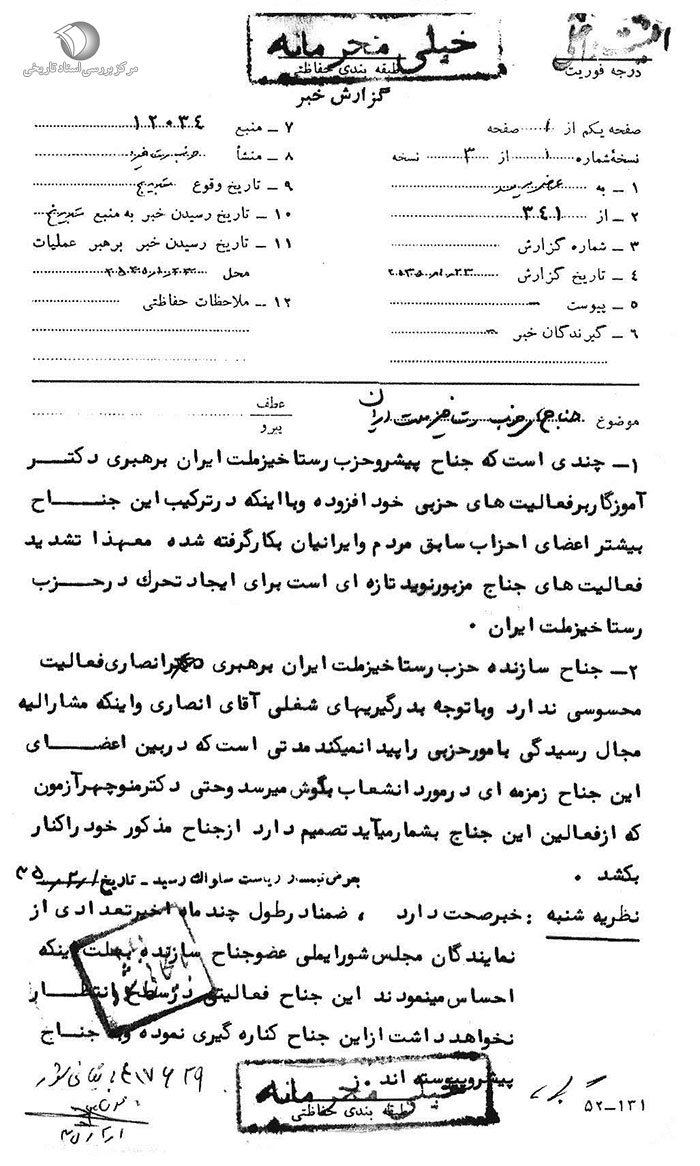 مرکز بررسی اسناد تاریخی
خیلی محرمانه
طبقه بندی حفاظتی
درجه فوریت
گزارش خبر
صفحه یکم از ۱ صفحه
نسخهٔ شماره ۱ از ۳ نسخه
۱ ــ به
۲ ــ از ۳۴۱
۳ ــ شماره گزارش
۴ ــ تاریخ گزارش
۵ ــ پیوست
۶ ــ گیرندگان خبر
۷ ــ منبع ۱۲۰۳۴
۸ ــ منشأ حزب رستاخیز
۹ ــ تاریخ وقوع
۱۰ ــ تاریخ رسیدن خبر به منبع
۱۱ ــ تاریخ رسیدن خبر برهبر عملیات
محل
۱۲ ــ ملاحظات حفاظتی
موضوع جناحهای حزب رستاخیز ملت ایران
عطف
پیرو
۱ــ چندی است که جناح پیشرو حزب رستاخیز ملت ایران برهبری دکتر
آموزگار بر فعالیت های حزبی خود افزوده و با اینکه در ترکیب این جناح
بیشتر اعضای احزاب سابق مردم و ایرانیان بکار گرفته شده معهذا تشدید
فعالیت های جناح مزبور نوید تازه ای است برای ایجاد تحرك در حزب
رستاخیز ملت ایران ۰
۲ــ جناح سازنده حزب رستاخیز ملت ایران برهبری انصاری فعالیت
محسوسی ندارد و با توجه بدرگیریهای شغلی آقای انصاری و اینکه مشارالیه
مجال رسیدگی بامور حزبی را پیدا نمیکند مدتی است که در بین اعضای
این جناح زمزمه ای در مورد انشعاب بگوش میرسد و حتی دکتر منوچهر آزمون
که از فعالین این جناح بشمار میآید تصمیم دارد از جناح مذکور خود را کنار
بکشد ۰
بعرض تیمسار ریاست ساواك رسید ــ تاریخ
نظریه شنبه : خبر صحت دارد ، ضمنا در طول چند ماه اخیر تعدادی از
نمایندگان مجلس شورایملی عضو جناح سازنده بعلت اینکه
احساس مینمودند این جناح فعالیتی در سطح انتظار
نخواهد داشت از این جناح کناره گیری نموده و به جناح
پیشرو پیوسته اند ۰ ز
خیلی محرمانه
طبقه بندی حفاظتی
۵۲ــ۱۳۱